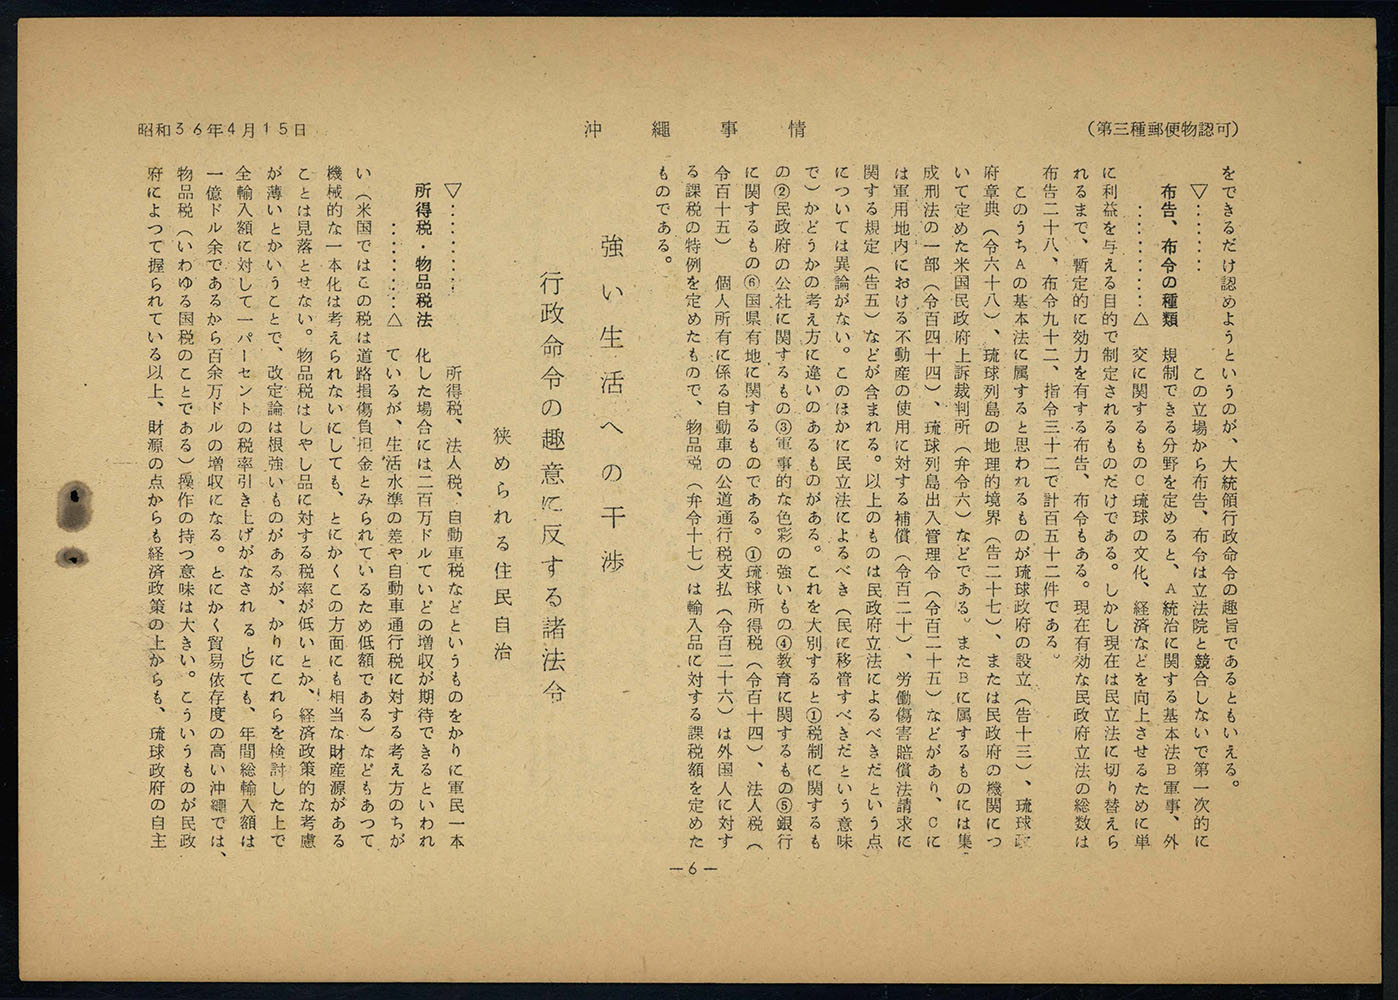 （第三種郵便物認可）
沖繩事情
昭和36年4月15日
をできるだけ認めようというのが、大統領行政命令の趣旨であるともいえる。
▽‥‥‥‥
布告、布令の種類
‥‥‥‥‥△
この立場から布告、布令は立法院と競合しないで第一次的に
規制できる分野を定めると、Ａ統治に関する基本法Ｂ軍事、外
交に関するものＣ琉球の文化、経済などを向上させるために単
に利益を与える目的で制定されるものだけである。しかし現在は民立法に切り替えら
れるまで、暫定的に効力を有する布告、布令もある。現在有効な民政府立法の総数は
布告二十八、布令九十二、指令三十二で計百五十二件である。
このうちＡの基本法に属すると思われるものが琉球政府の設立（告十三）、琉球政
府章典（令六十八）、琉球列島の地理的境界（告二十七）、または民政府の機関につ
いて定めた米国民政府上訴裁判所（弁令六）などである。またＢに属するものには集
成刑法の一部（令百四十四）、琉球列島出入管理令（令百二十五）などがあり、Ｃに
は軍用地内における不動産の使用に対する補償（令百二十）、労働傷害賠償法請求に
関する規定（告五）などが含まれる。以上のものは民政府立法によるべきだという点
については異論がない。このほかに民立法によるべき（民に移管すべきだという意味
で）かどうかの考え方に違いのあるものがある。これを大別すると①税制に関するも
の②民政府の公社に関するもの③軍事的な色彩の強いもの④教育に関するもの⑤銀行
に関するもの⑥国県有地に関するものである。①琉球所得税（令百十四）、法人税（
令百十五）　個人所有に係る自動車の公道通行税支払（令百二十六）は外国人に対す
る課税の特例を定めたもので、物品税（弁令十七）は輸入品に対する課税額を定めた
ものである。
強い生活への干渉
行政命令の趣意に反する諸法令
狭められる住民自治
▽‥‥‥‥‥
所得税・物品税法
‥‥‥‥‥△
所得税、法人税、自動車税などというものをかりに軍民一本
化した場合には二百万ドルていどの増収が期待できるといわれ
ているが、生活水準の差や自動車通行税に対する考え方のちが
い（米国ではこの税は道路損傷負担金とみられているため低額である）などもあつて
機械的な一本化は考えられないにしても、とにかくこの方面にも相当な財産源がある
ことは見落とせない。物品税はしやし品に対する税率が低いとか、経済政策的な考慮
が薄いとかいうことで、改定論は根強いものがあるが、かりにこれらを検討した上で
全輸入額に対して一パーセントの税率引き上げがなされるとしても、年間総輸入額は
一億ドル余であるから百余万ドルの増収になる。とにかく貿易依存度の高い沖繩では、
物品税（いわゆる国税のことである）操作の持つ意味は大きい。こういうものが民政
府によつて握られている以上、財源の点からも経済政策の上からも、琉球政府の自主
—6—